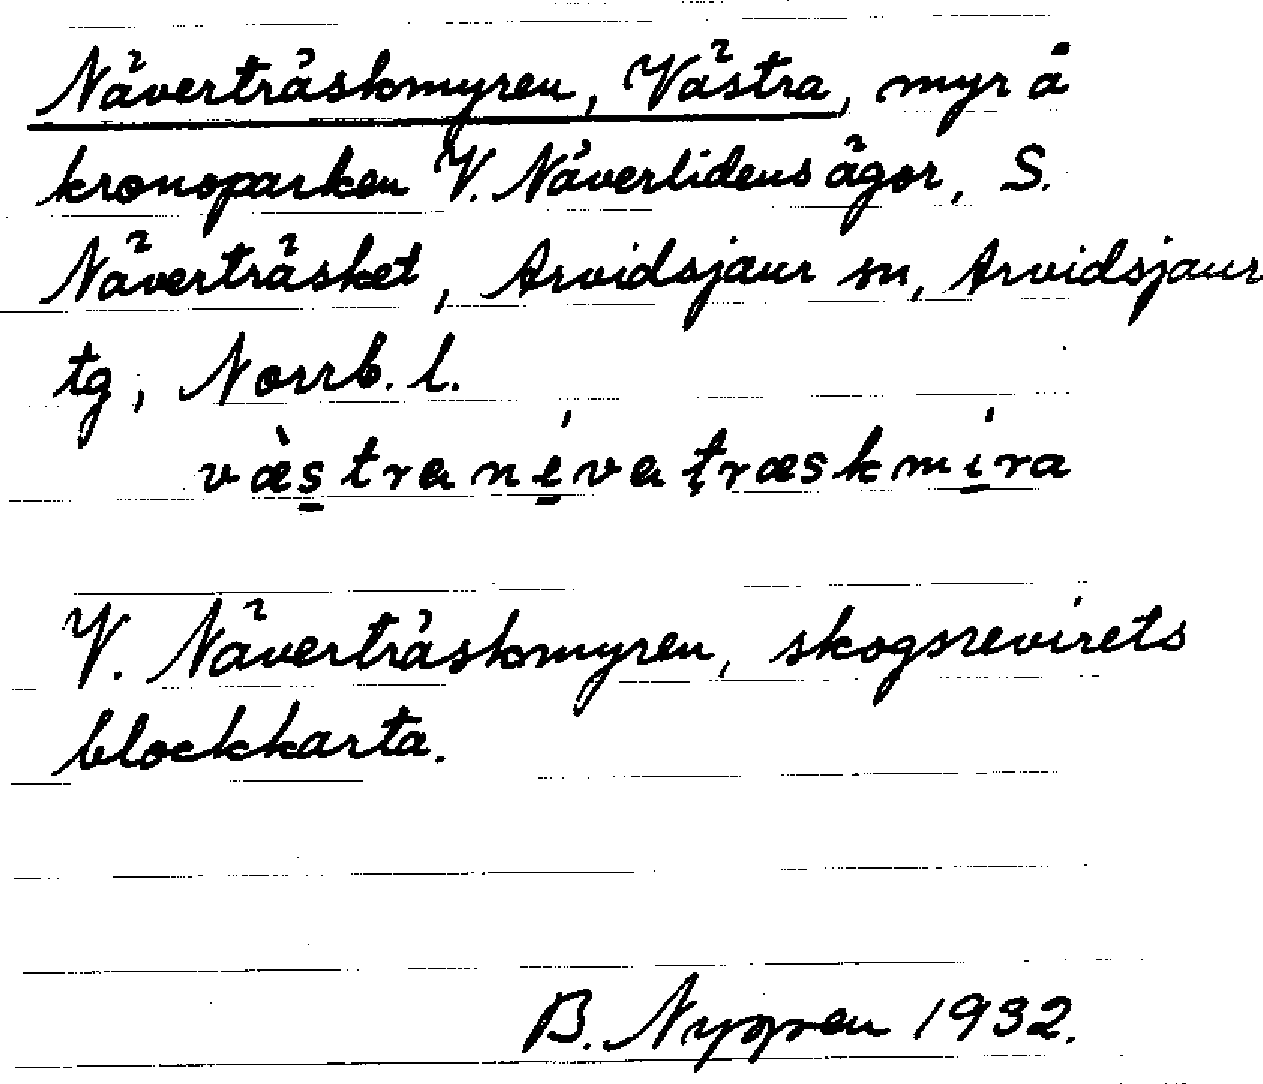 Näverträskmyren, Västra, myr å
kronoparken V. Näverlidens ägor, S.
Näverträsket, Arvidsjaur sn, Arvidsjaur
tg, Norrb. l.
væ̀stra néva træskmíra
V. Näverträskmyren, skogsrevirets
blockkarta.
B. Nygren 1932.